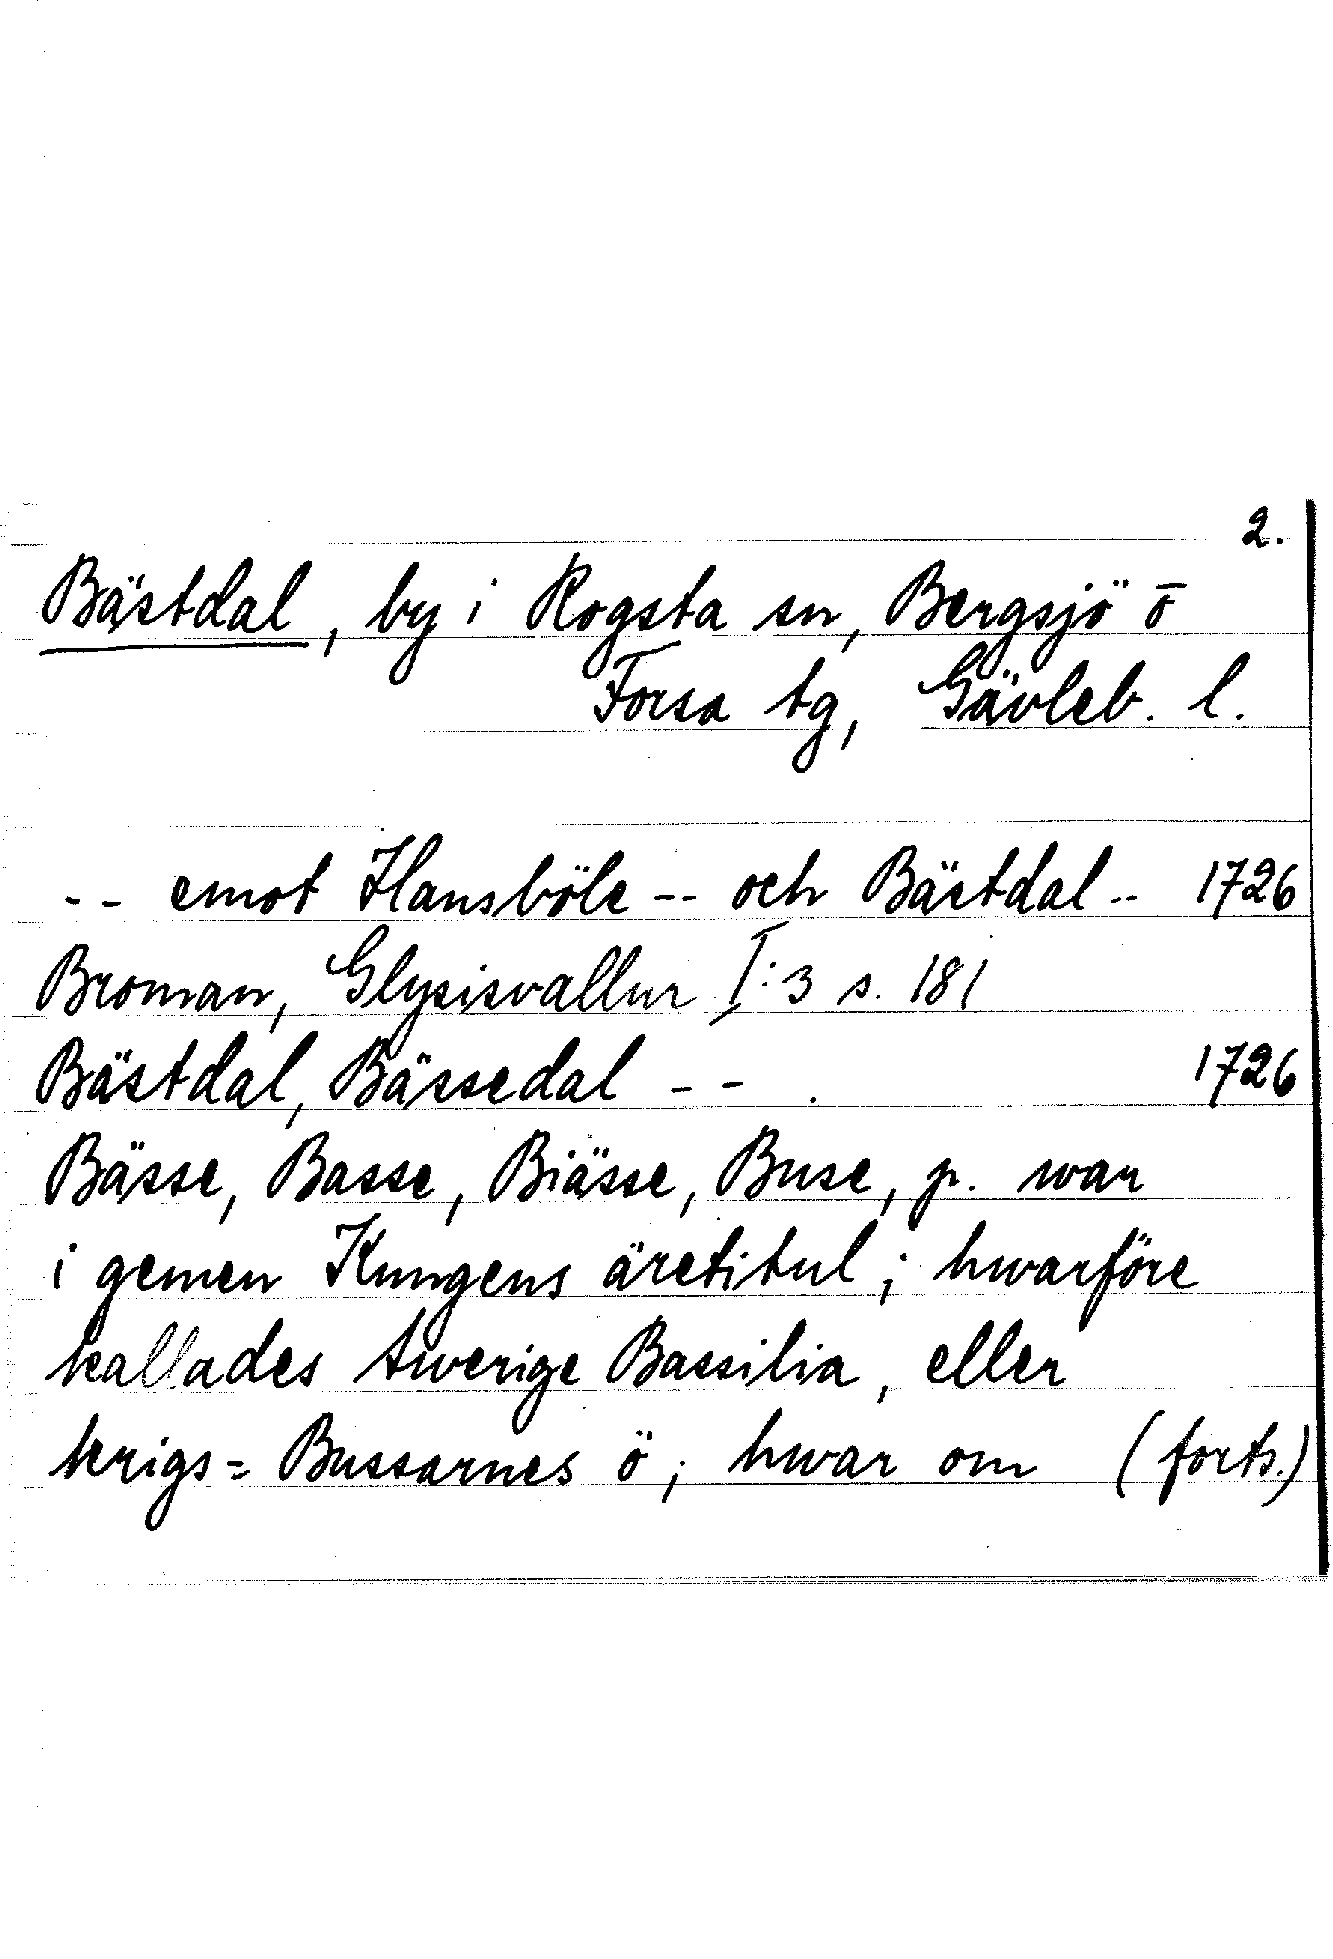 2.
Bästdal, by i Rogsta sn, Bergsjö o
Forsa tg, Gävleb. l.
-- emot Hansböle -- och Bästdal -- 1726
Broman, Glysisvallur I:3 s. 181
Bästdal, Bässedal -- . 1726
Bässe, Basse, Biässe, Buse, p. war
i gemen Kungens äretitul; hwarföre
kallades Swerige Bassilia, eller
krigs=Bussarnes ö; hwar om (forts.)